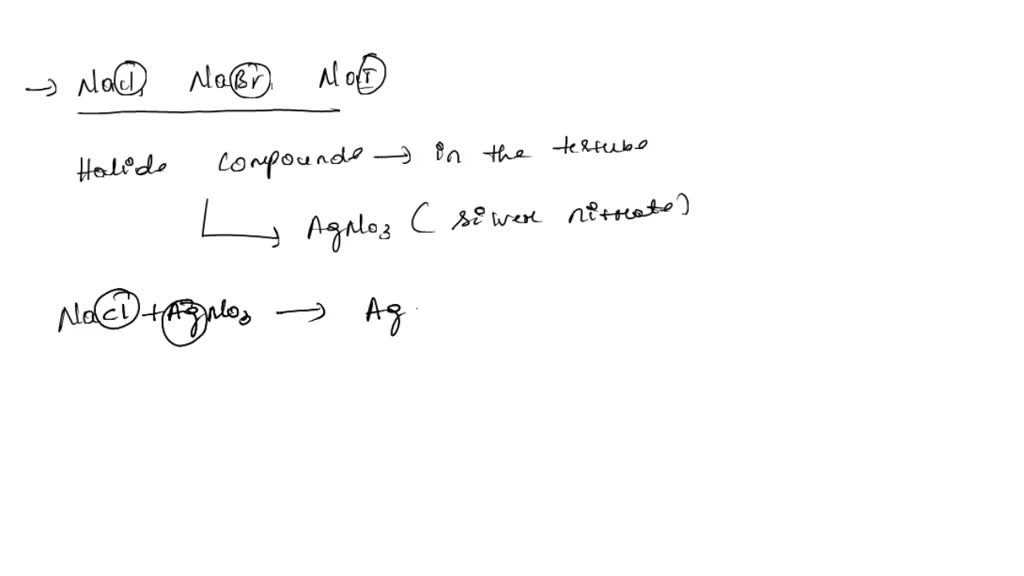 → NaCl, NaBr, NaI
Halide compounds → in the testube
AgNo3 ( silver nitrate)
NaCl + AgNo3 → Ag